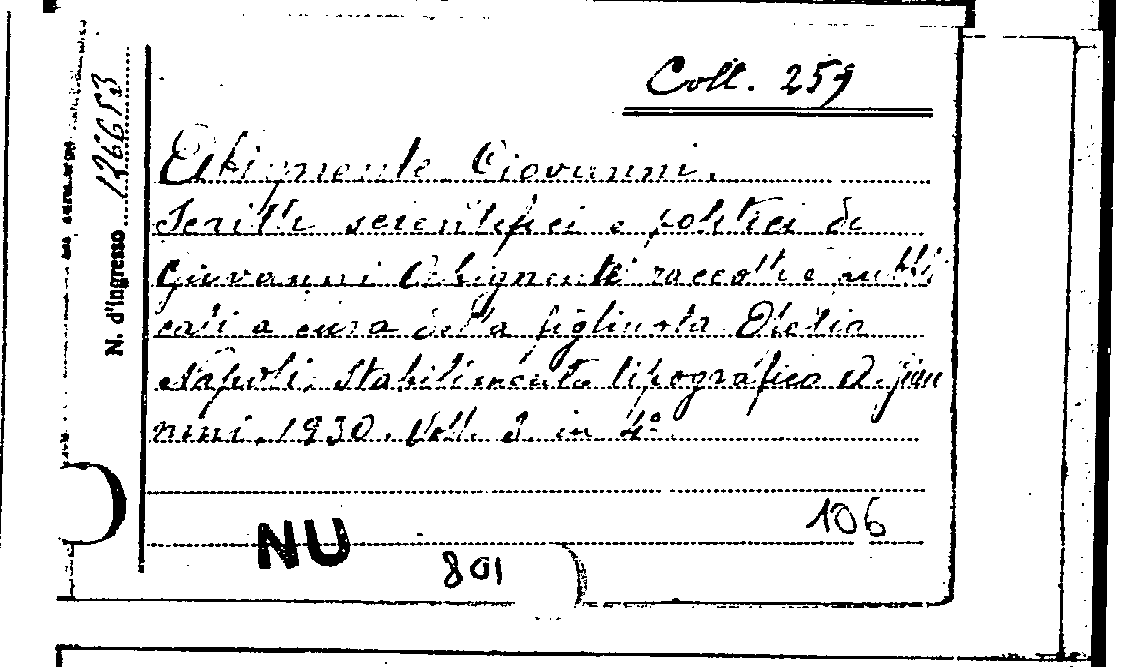 Coll. 259
N. d'Ingresso 126653
Abignente Giovanni.
Scritti scientifici e politici di
Giovanni Abignenti raccolti e pubbli
cati a cura della figliuola Otolia
Napoli, Stabilimento tipografico D. Gian
nini, 1930. Voll. 2 in 4°.
106
NU
801